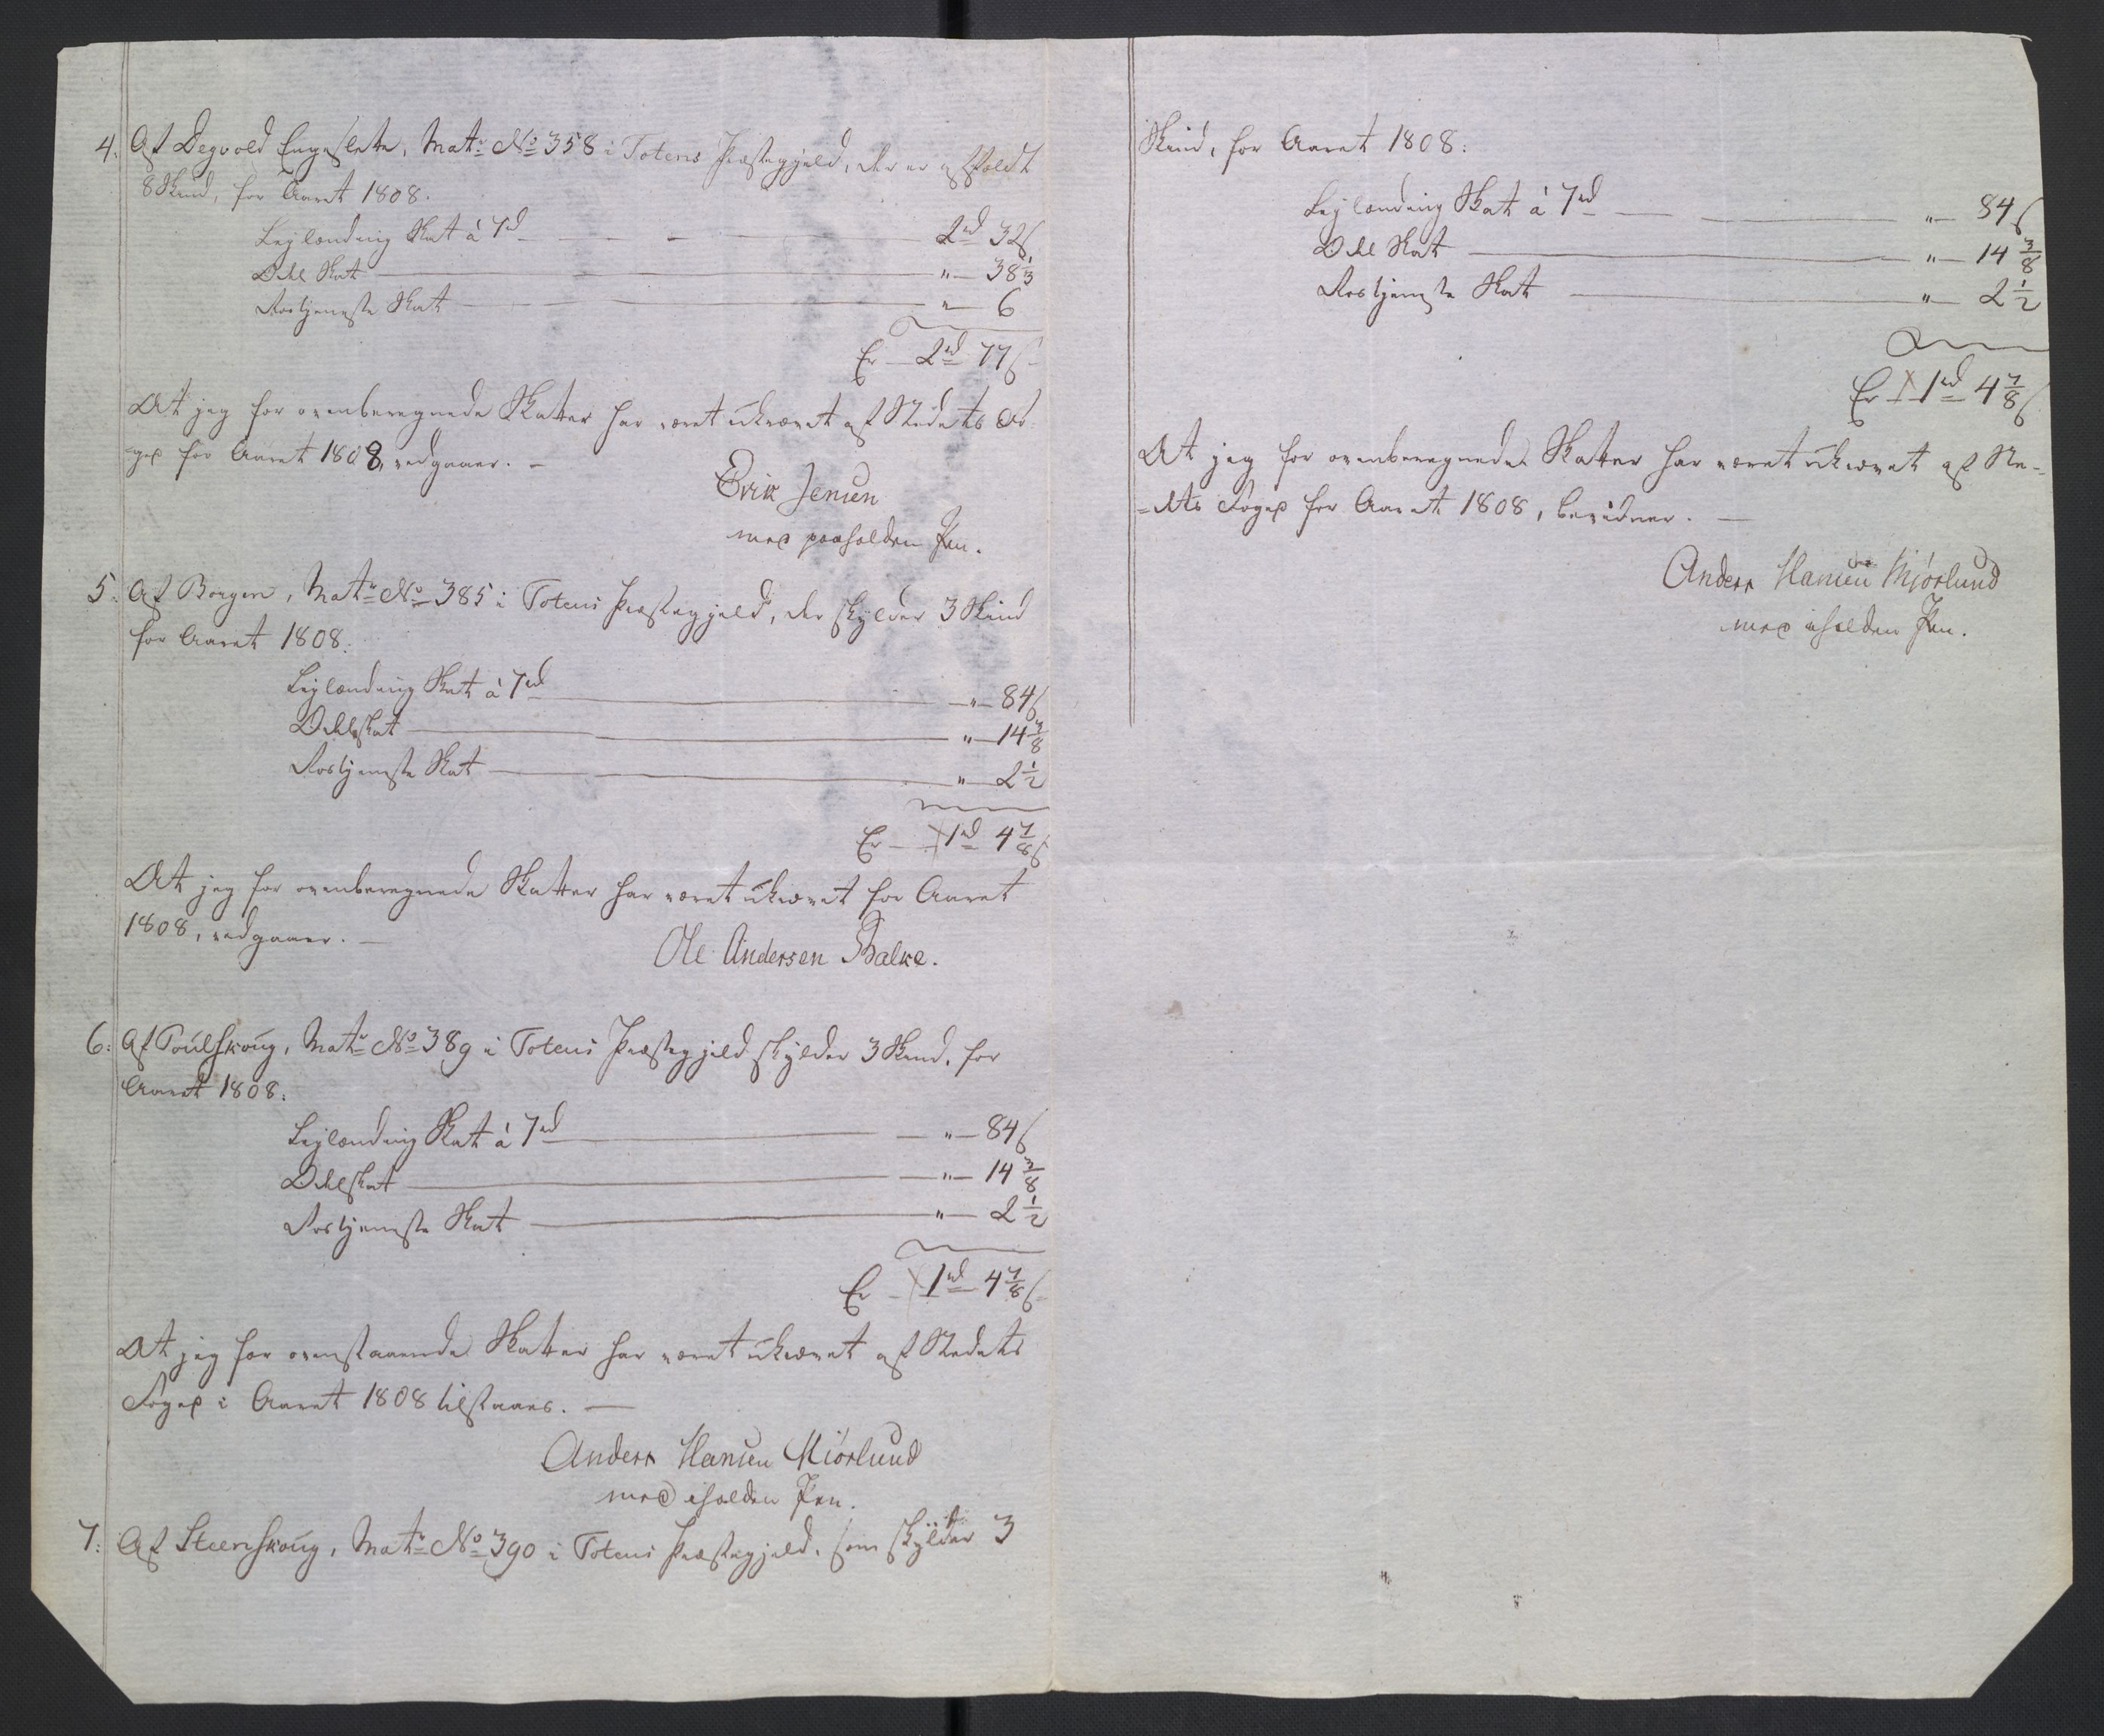 4. Af Degvold Engeslette, Matr: No 358 i Totens Præstegjeld, der er afskoldt
8 Skind, for Aaret 1808.
Leylænding Skat à 7rd — 2rd 32ß
Odel Skat — " — 38 1/3
Rostjeneste Skat — " — 6
Er — 2rd 77ß
At jeg for ovenberegnede Skatter har været ukrævet af Stedets Fo-
ged for Aaret 1808, vedgaaer. —
Erik Jensen
med paaholden Pen.
5. Af Borgen, Matr: No 385 i Totens Præstegjeld, der skylder 3 Skind
for Aaret 1808.
Leylænding Skat à 7rd — " — 84ß
Odelskat — " — 14 3/8
Rostjeneste Skat — " — 2 1/2
Er — 1rd 4 7/8 ß
At jeg for ovenberegnede Skatter har været ukrævet for Aaret
1808, vedgaaer. —
Ole Andersen Balke.
6: Af Poulskoug, Matr: No 389 i Totens Præstegjeld skylder 3 Skind, for
Aaret 1808.
Leylænding Skat à 7rd — " — 84ß
Odelskat — " — 14 3/8
Rostjeneste Skat — " — 2 1/2
Er — 1rd 4 7/8 ß
At jeg for ovenstaaende Skatter har været ukrævet af Stedets
Foged i Aaret 1808 tilstaaes. —
Anders Hansen Miörlund
med iholden Pen.
7: Af Steenskoug, Matr: No 390 i Totens Præstegjeld, som skylder 3
Skind, for Aaret 1808:
Leylænding Skat à 7rd — " — 84ß
Odel Skat — " — 14 3/8
Rostjeneste Skat — " — 2 1/2
Er — 1rd 4 7/8 ß
At jeg for ovenberegnede Skatter har været ukrævet af Ste-
-dets Foged for Aaret 1808, bevidner. —
Anders Hansen Mjörlund
med iholden Pen.